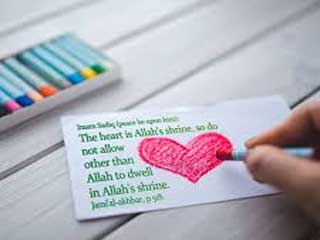 Imam Sadiq (peace be upon him):
The heart is Allah's shrine, so do
not allow
other than
Allah to dwell
in Allah's shrine.
Jami'al-akhbar, p 98.